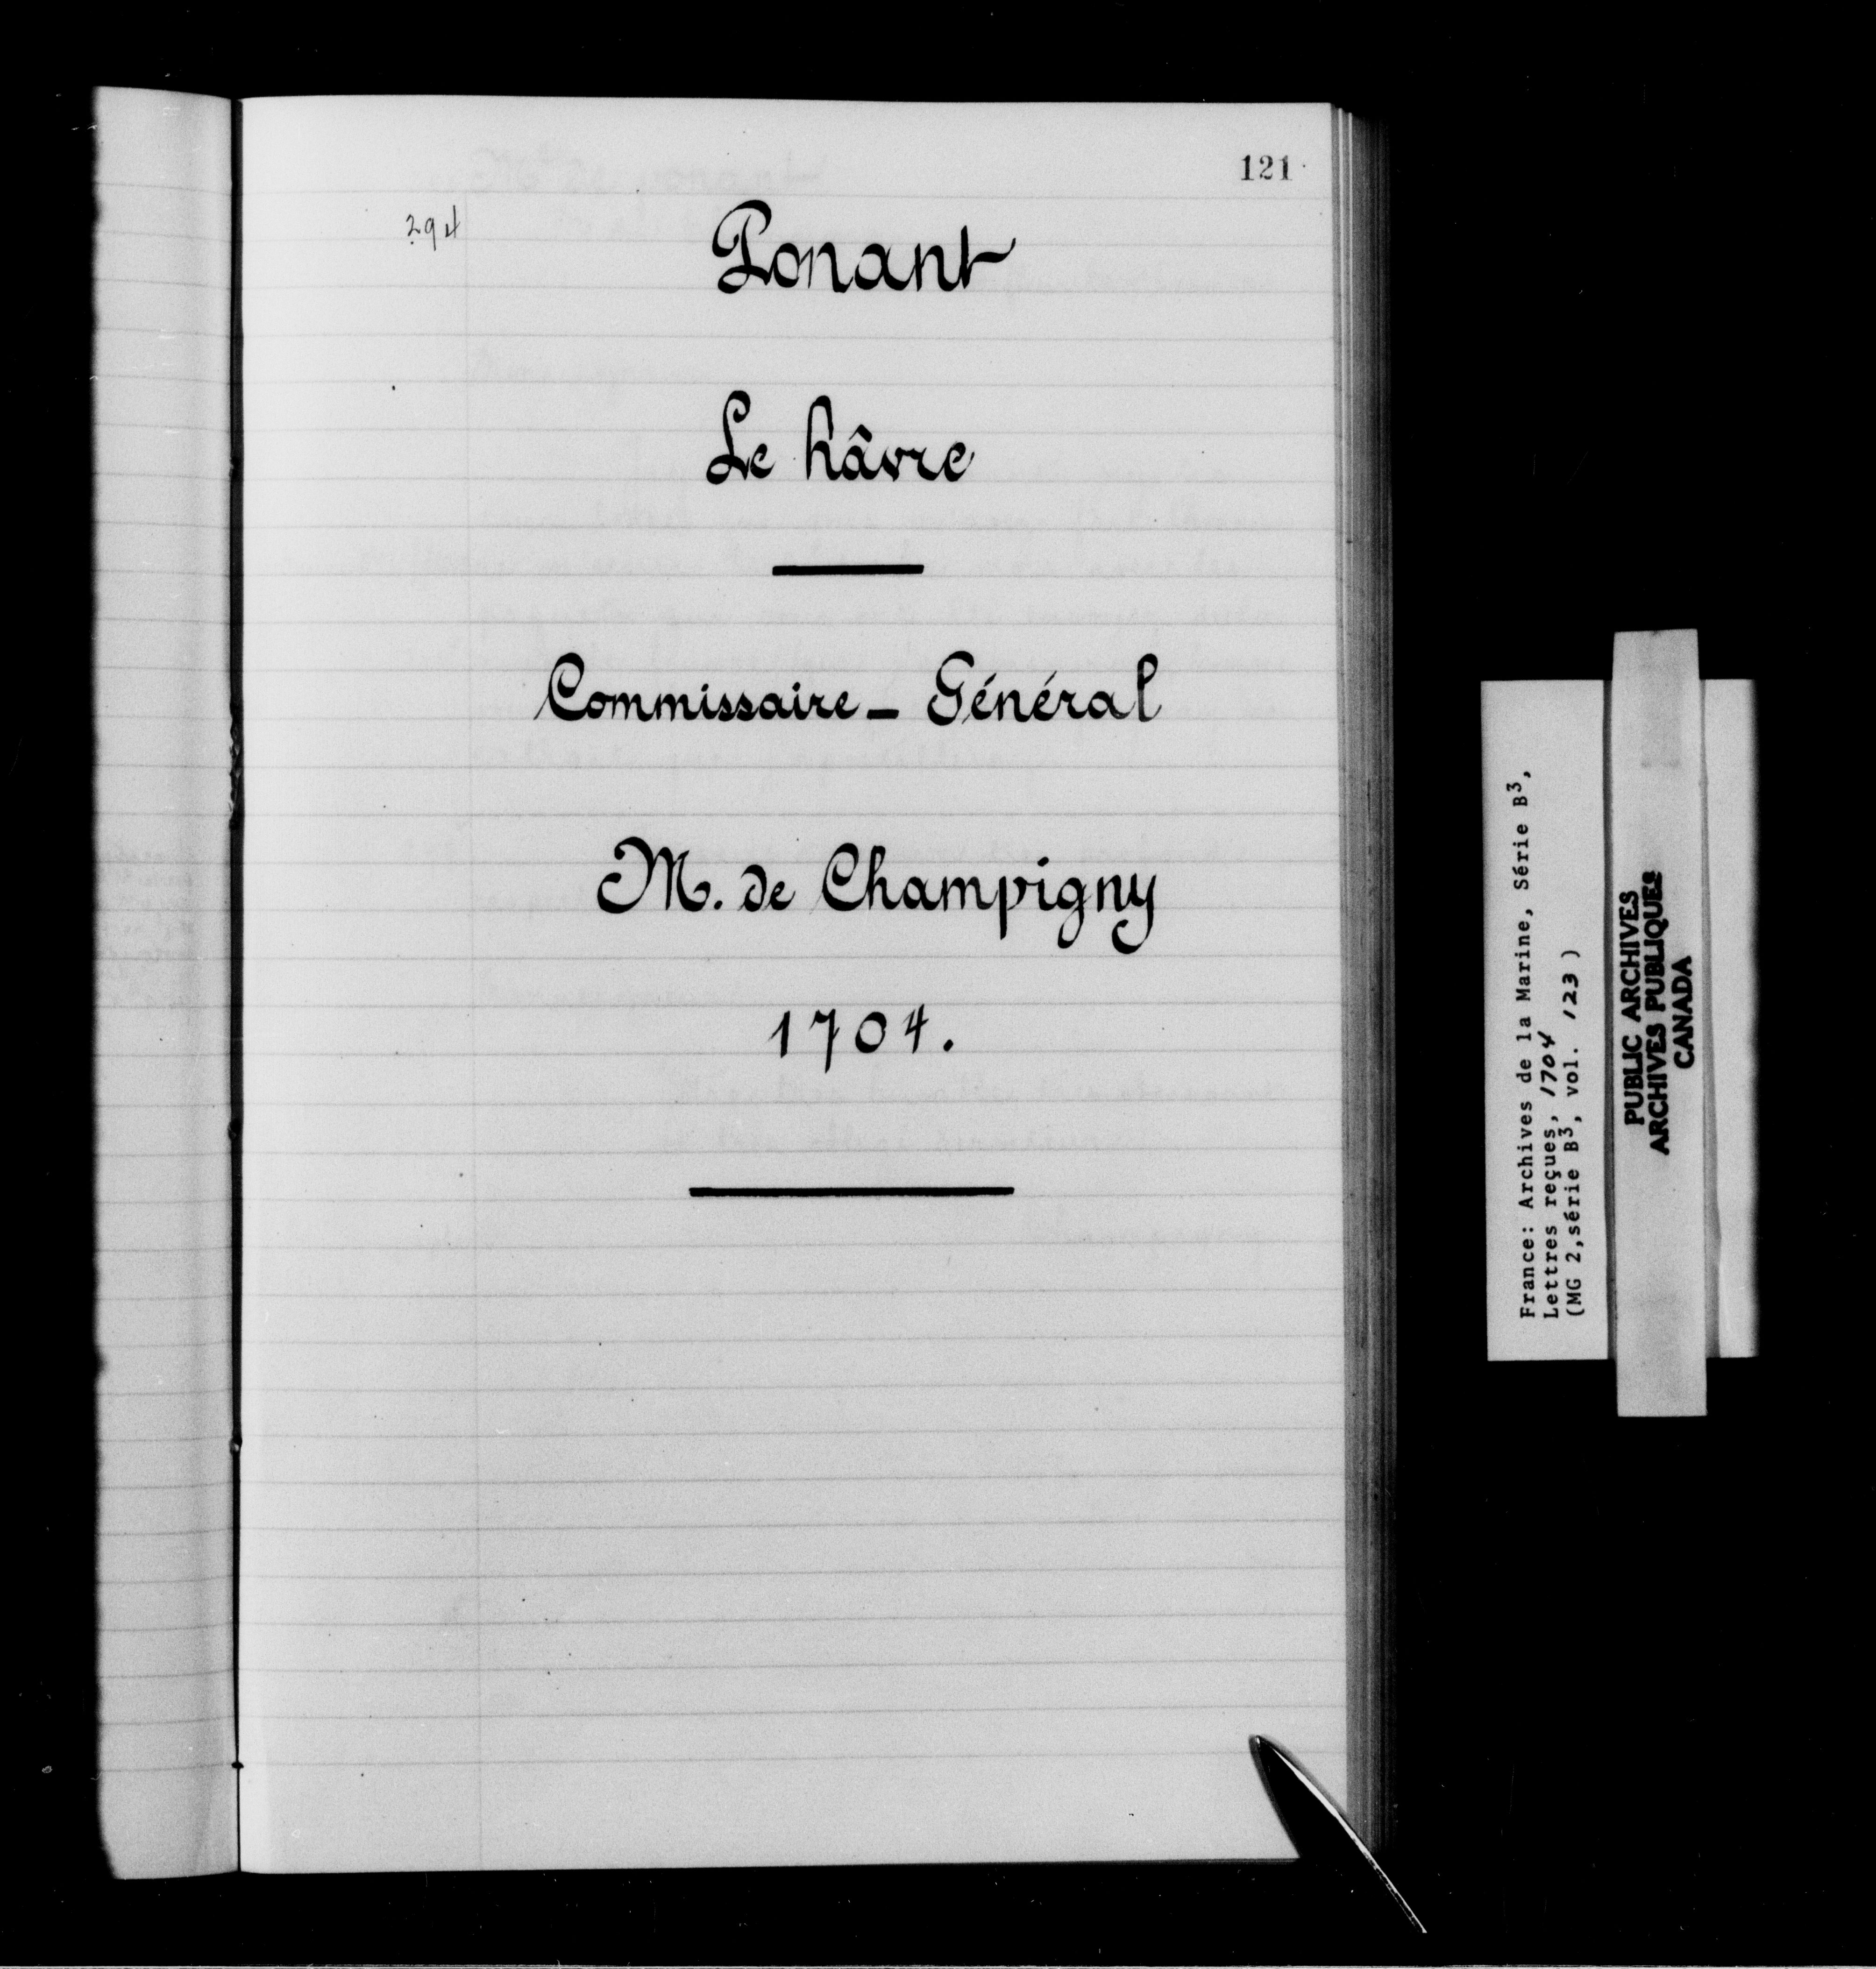 121
294
Ponant
Le hâvre
Commissaire - Général
M. de Champigny
1704.
France: Archives de la Marine, Série B3,
Lettres reçues, 1704
(MG 2, série B3, vol. 123)
PUBLIC ARCHIVES
ARCHIVES PUBLIQUES
CANADA